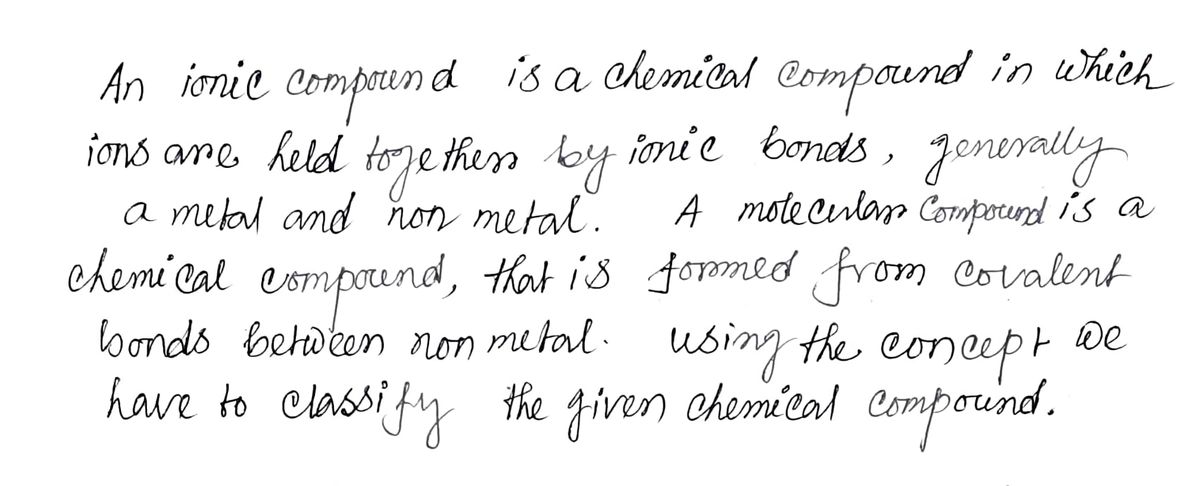 An ionic compound is a chemical compound in which
ions are held together by ionic bonds, generally
a metal and non metal. A molecular compound is a
chemical compound, that is formed from covalent
bonds between non metal. using the concept we
have to classify the given chemical compound.